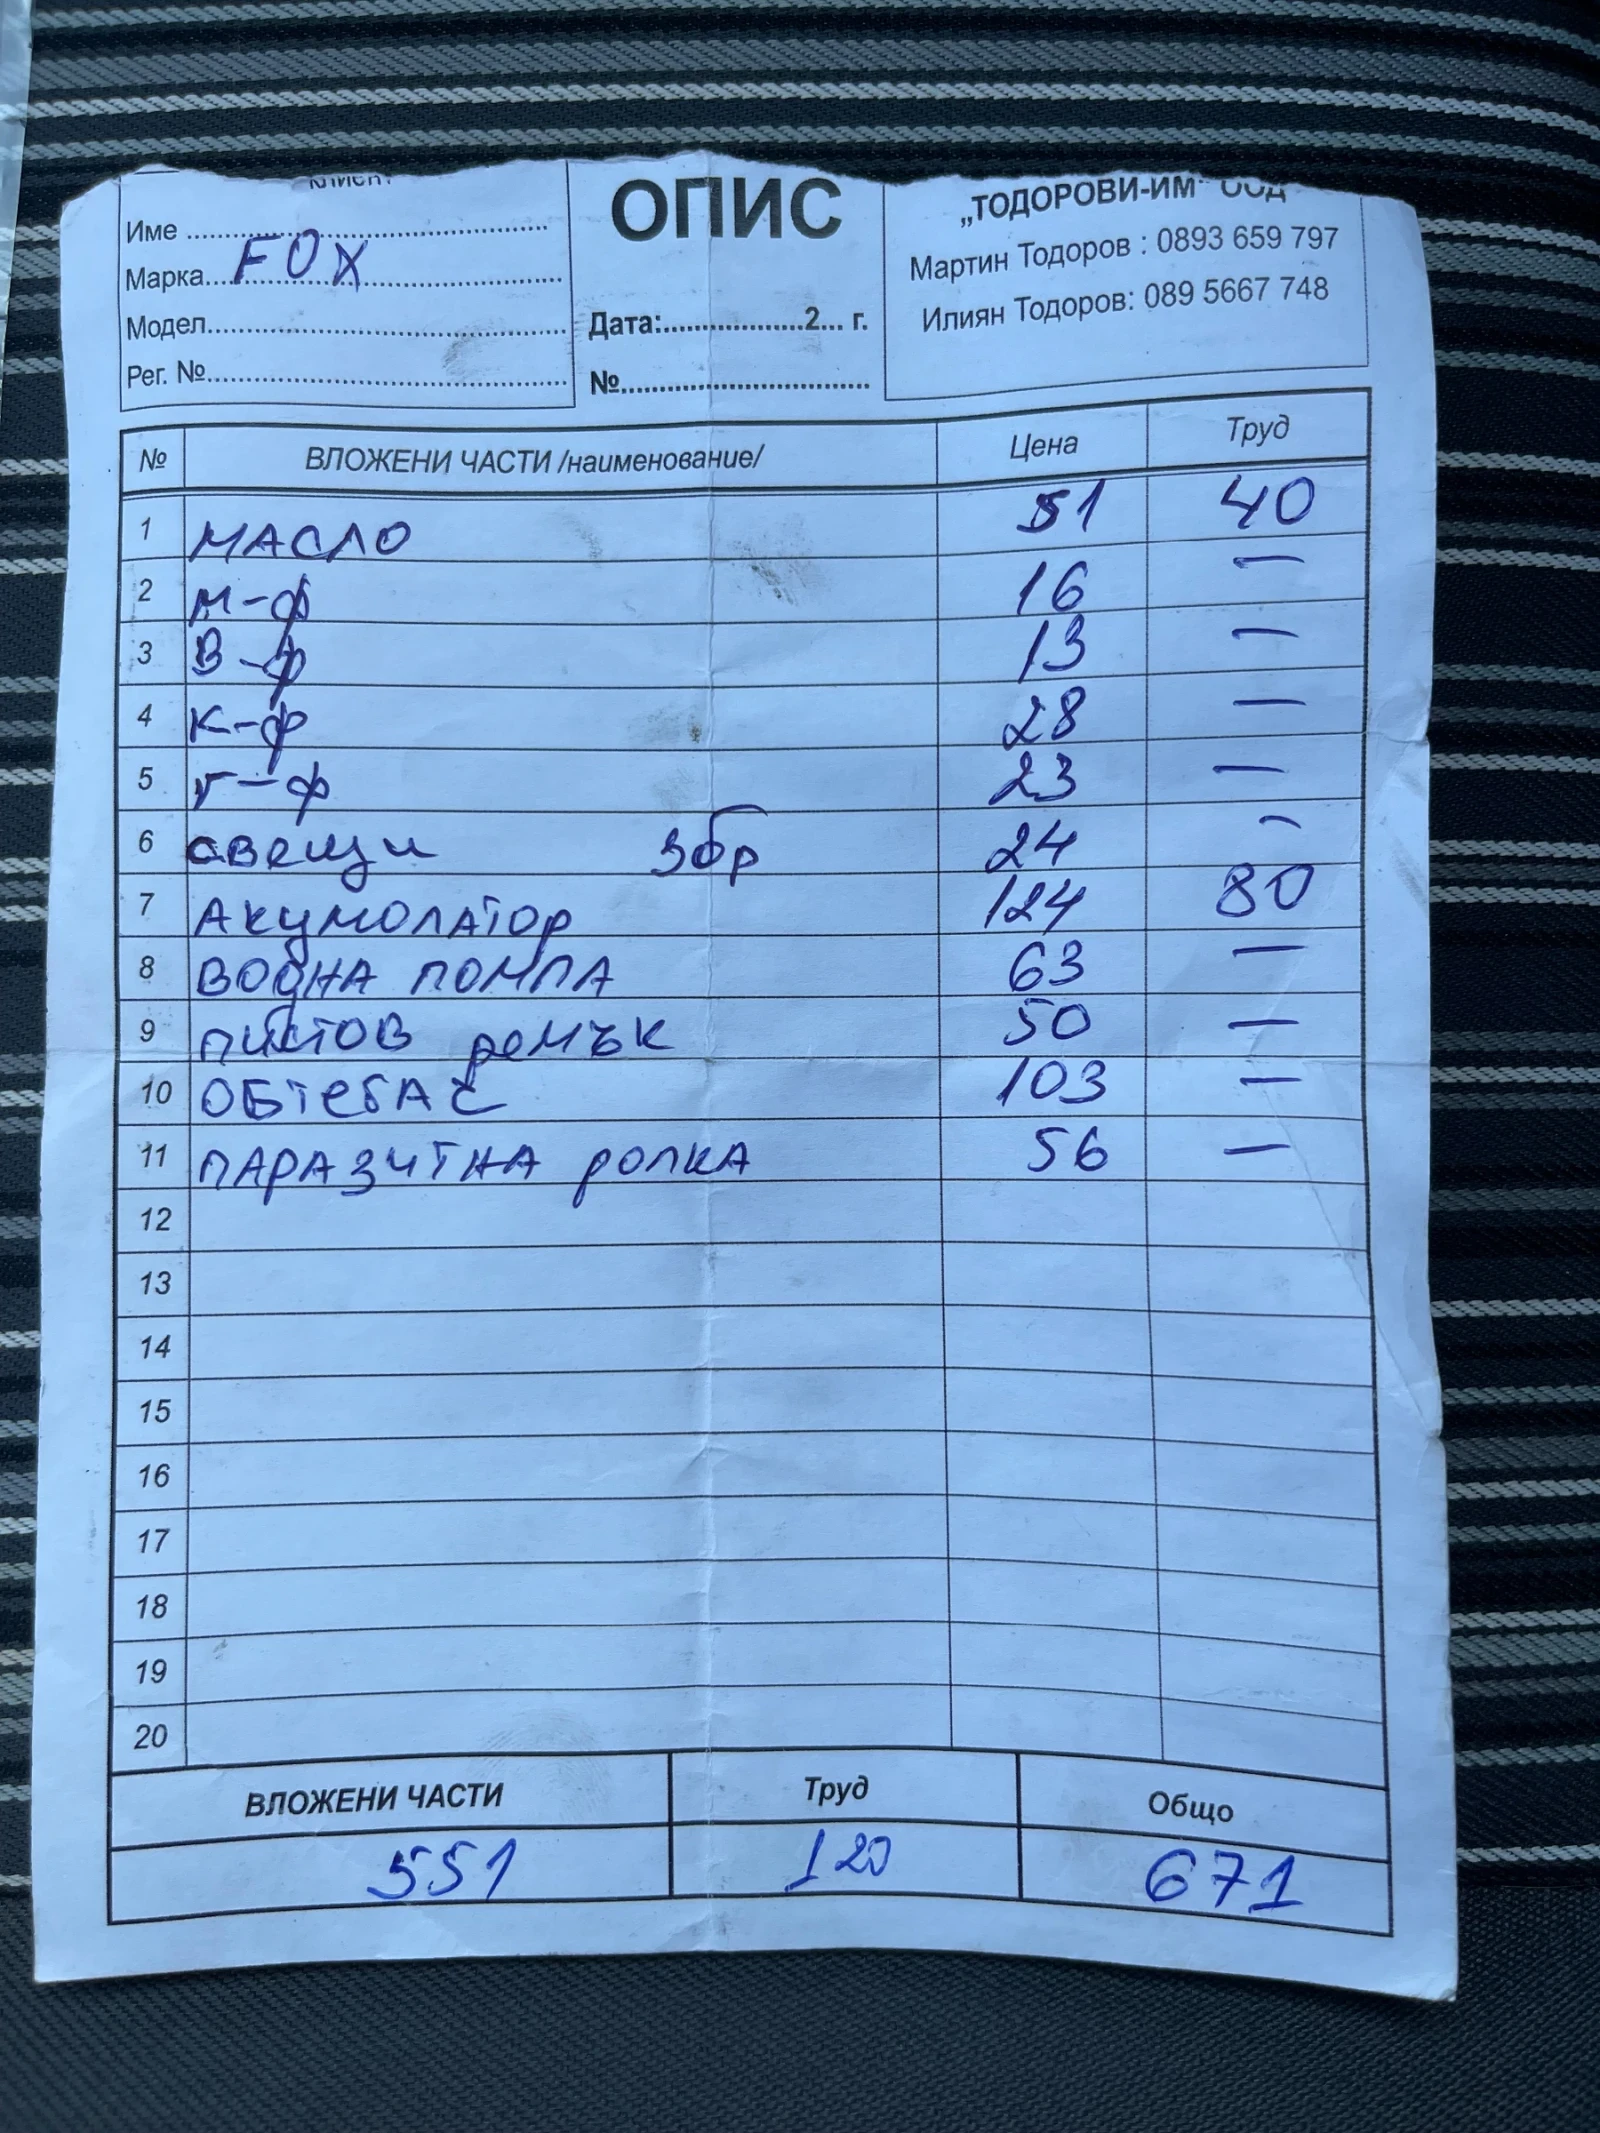 Име
Марка FOX
Модел
Рег. №
ОПИС
Дата: 2 г.
№
„ТОДОРОВИ-ИМ" ООД
Мартин Тодоров : 0893 659 797
Илиян Тодоров: 089 5667 748
№ ВЛОЖЕНИ ЧАСТИ /наименование/ Цена Труд
1 МАСЛО 51 40
2 М-ф 16 —
3 В-ф 13 —
4 К-ф 28 —
5 г-ф 23 —
6 свещи 3бр 24 —
7 АКУМОЛАТОР 124 80
8 ВОДНА ПОМПА 63 —
9 ПИСТОВ РЕМЪК 50 —
10 ОБТЕГАЧ 103 —
11 ПАРАЗИТНА РОЛКА 56 —
12
13
14
15
16
17
18
19
20
ВЛОЖЕНИ ЧАСТИ Труд Общо
551 120 671